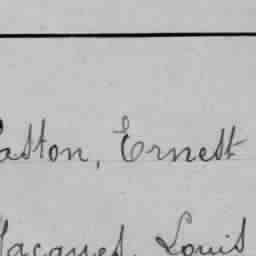 Gaston, Ernest
Jacques, Louis